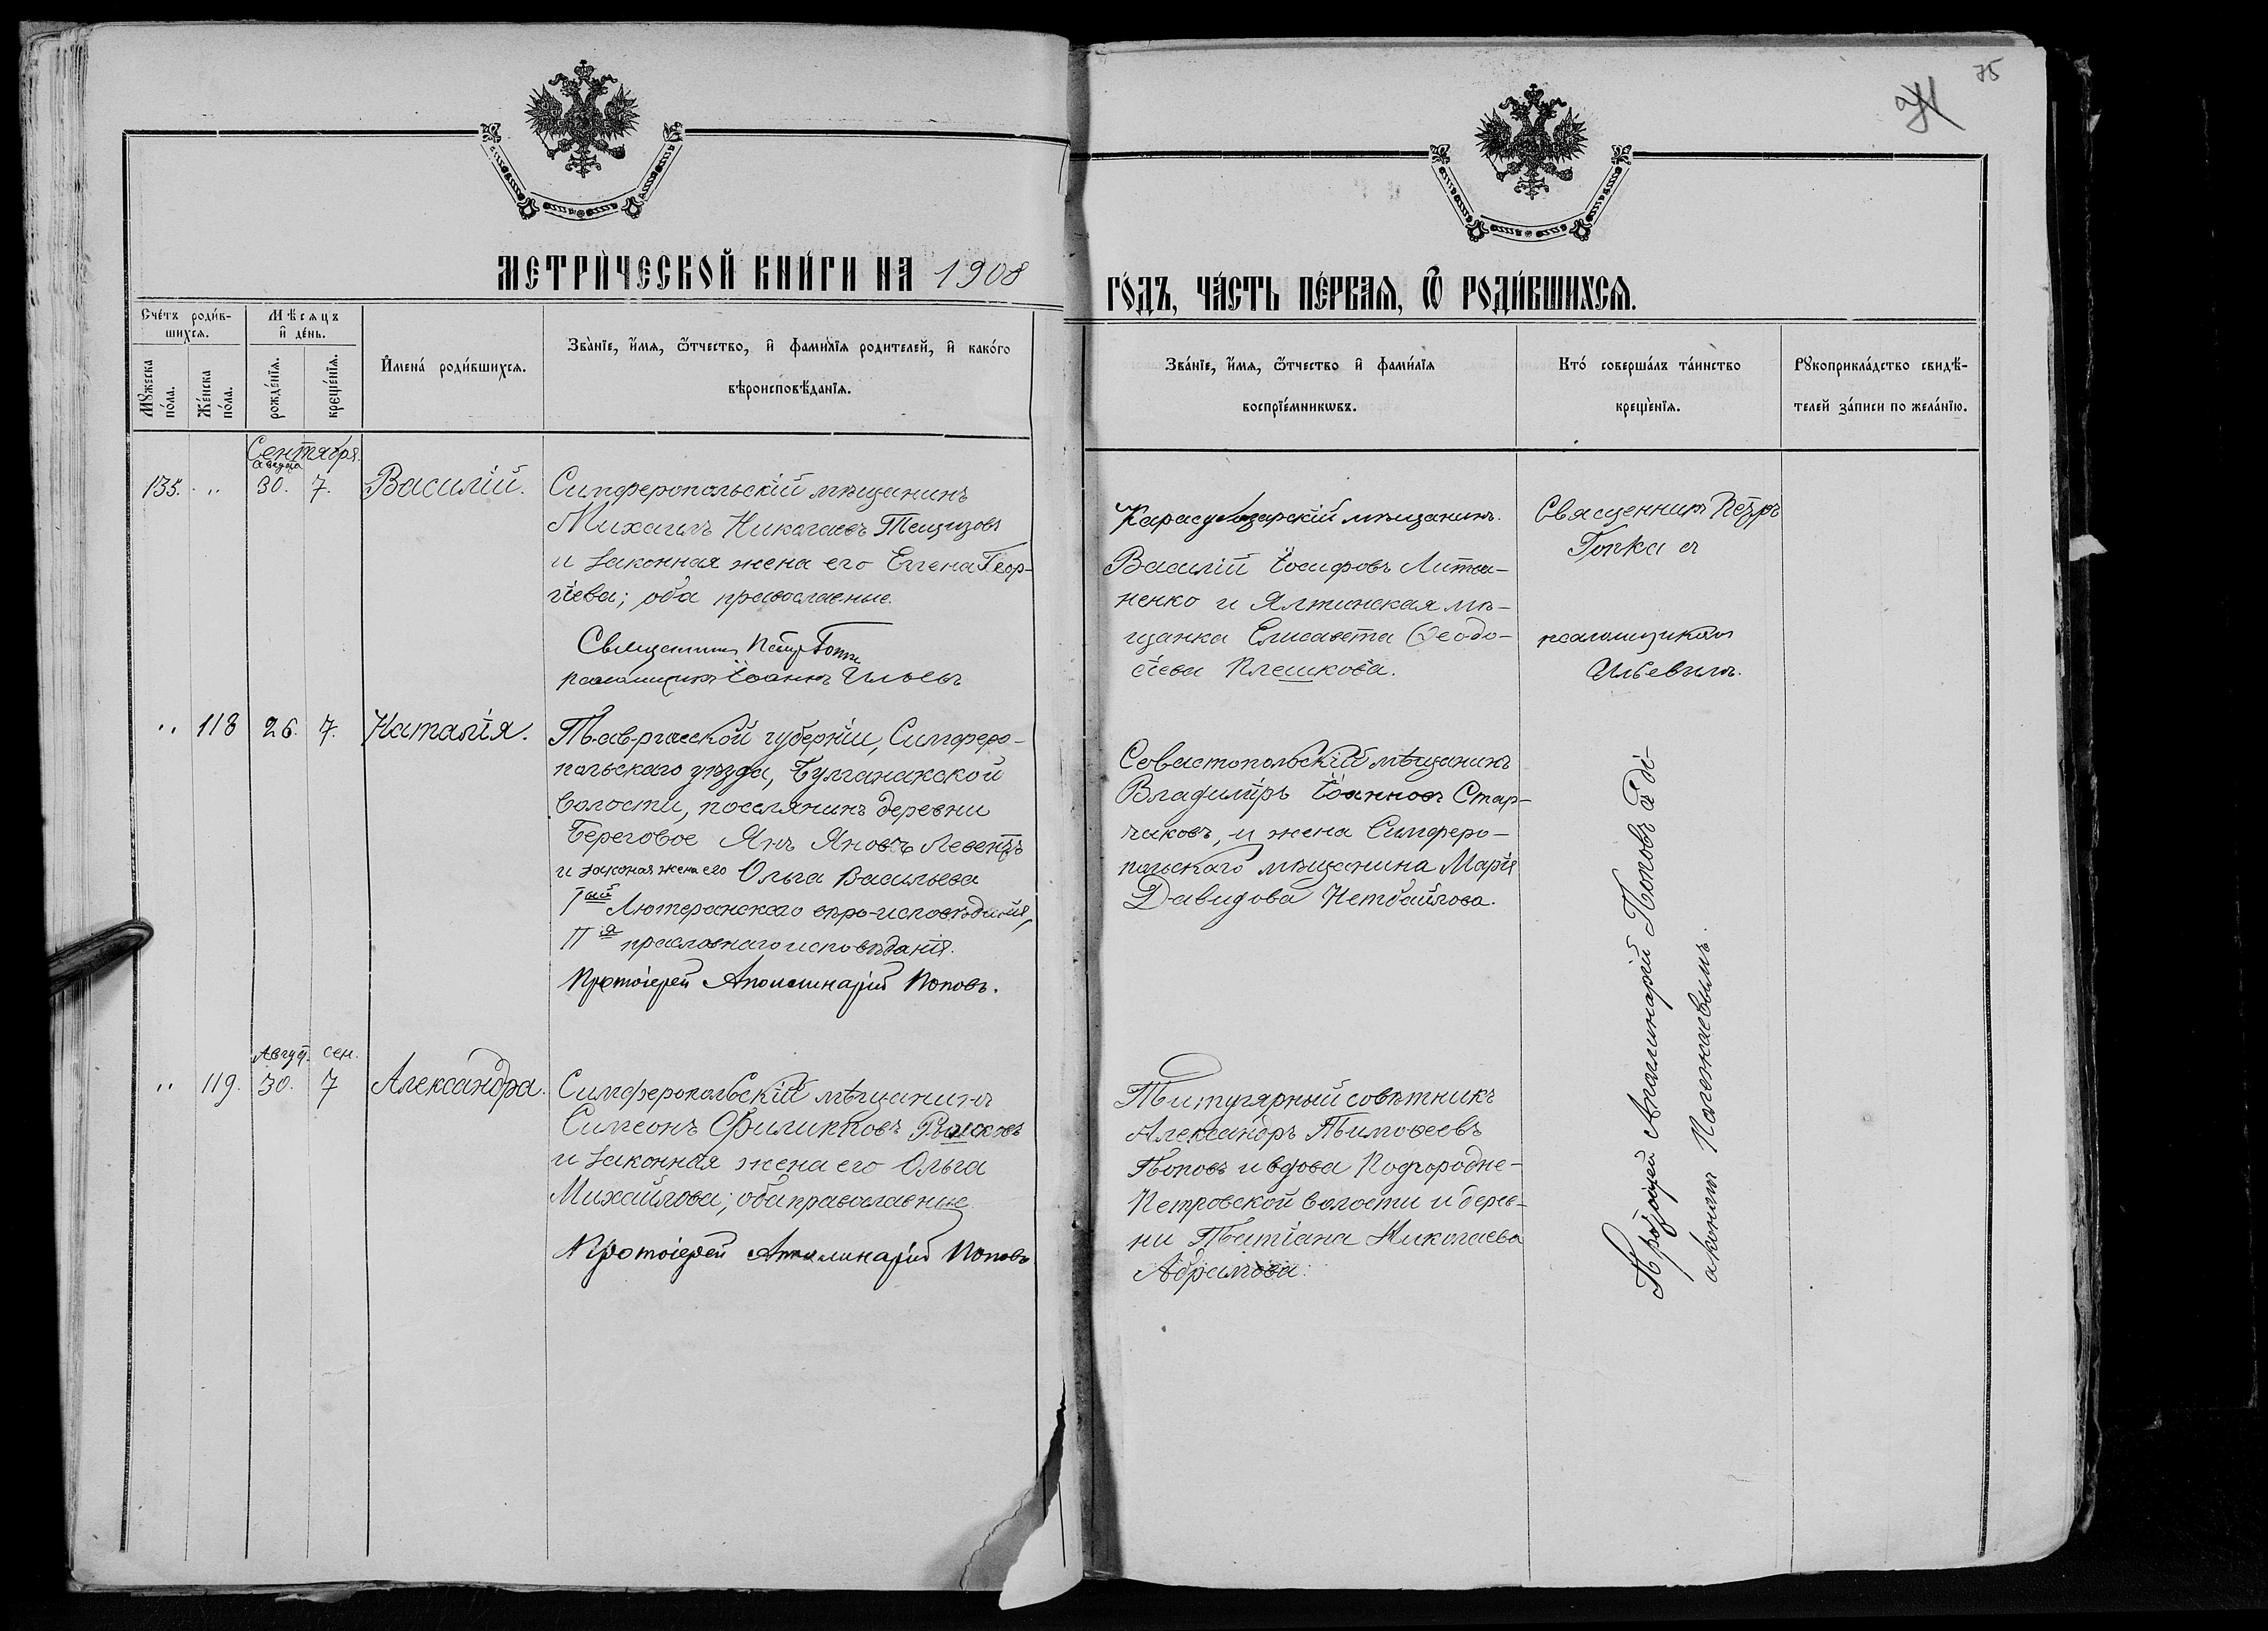 75
МЕТРИ́ЧЕСКОЙ КНИ́ГИ НА 1908
ГО́ДЪ, ЧА́СТЬ ПЕ́РВАЯ, Ѿ РОДИ́ВШИХСЯ.
Сче́тъ роди́в-
шихся.
Мѣсяцъ
и де́нь.
Мꙋжеска
по́ла.
Же́нска
по́ла.
рожде́нїя.
креще́нїя.
Имена́ роди́вшихся.
Зва́нїе, и́мя, ѻ́тчество, и фами́лїя родителей, и како́го
вѣроисповѣ́данїя.
Зва́нїе, и́мя, ѻ́тчество и фами́лїя
воспрїе́мникѡвъ.
Кто́ соверша́лъ та́инство
креще́нїя.
Рꙋкоприкла́дство свидѣ́-
телей за́писи по жела́нїю.
Сентября
августа
135. „ 30. 7. Василій.
Симферопольскій мѣщанинъ
Михаилъ Николаевъ
и законная жена его Елена Геор-
гіева; оба православные.
Священникъ Петръ
псаломщикъ Іоаннъ Ильевъ
Карасубазарскій мѣщанинъ
Василій Іосифовъ Литви-
ненко и Ялтинская мѣ-
щанка Елисавета Ѳеодо-
сіева Плешкова.
Священникъ Петръ
съ
псаломщикомъ
Ильевымъ.
„ 118 26. 7. Наталія.
Таврической губерніи, Симферо-
польскаго уѣзда, Булганакской
волости, поселянинъ деревни
Береговое Янъ Яновъ
и законая жена его Ольга Васильева
Iый Лютеранскаго вѣро-исповѣданія,
IIя праслов­наго исповѣданія.
Протоіерей Аполинарій Поповъ.
Севастопольскій мѣщанинъ
Владиміръ Іоанновъ Стар-
чиковъ, и жена Симферо-
польскаго мѣщанина Марія
Давидова Нетбайлова.
Август. сен.
„ 119. 30. 7 Александра.
Симферопольскій мѣщанинъ
Симеонъ Филипповъ
и законная жена его Ольга
Михайлова; оба православные
Протоіерей Аполинарій Поповъ
Титулярный совѣтникъ
Александръ Тимоѳеевъ
Поповъ и вдова Подгородне-
Петровской волости и дерев-
ни Татіана Николаева
Абрамова.
Протоіерей Аполлинарій Поповъ съ ді-
акономъ Полежаевымъ.